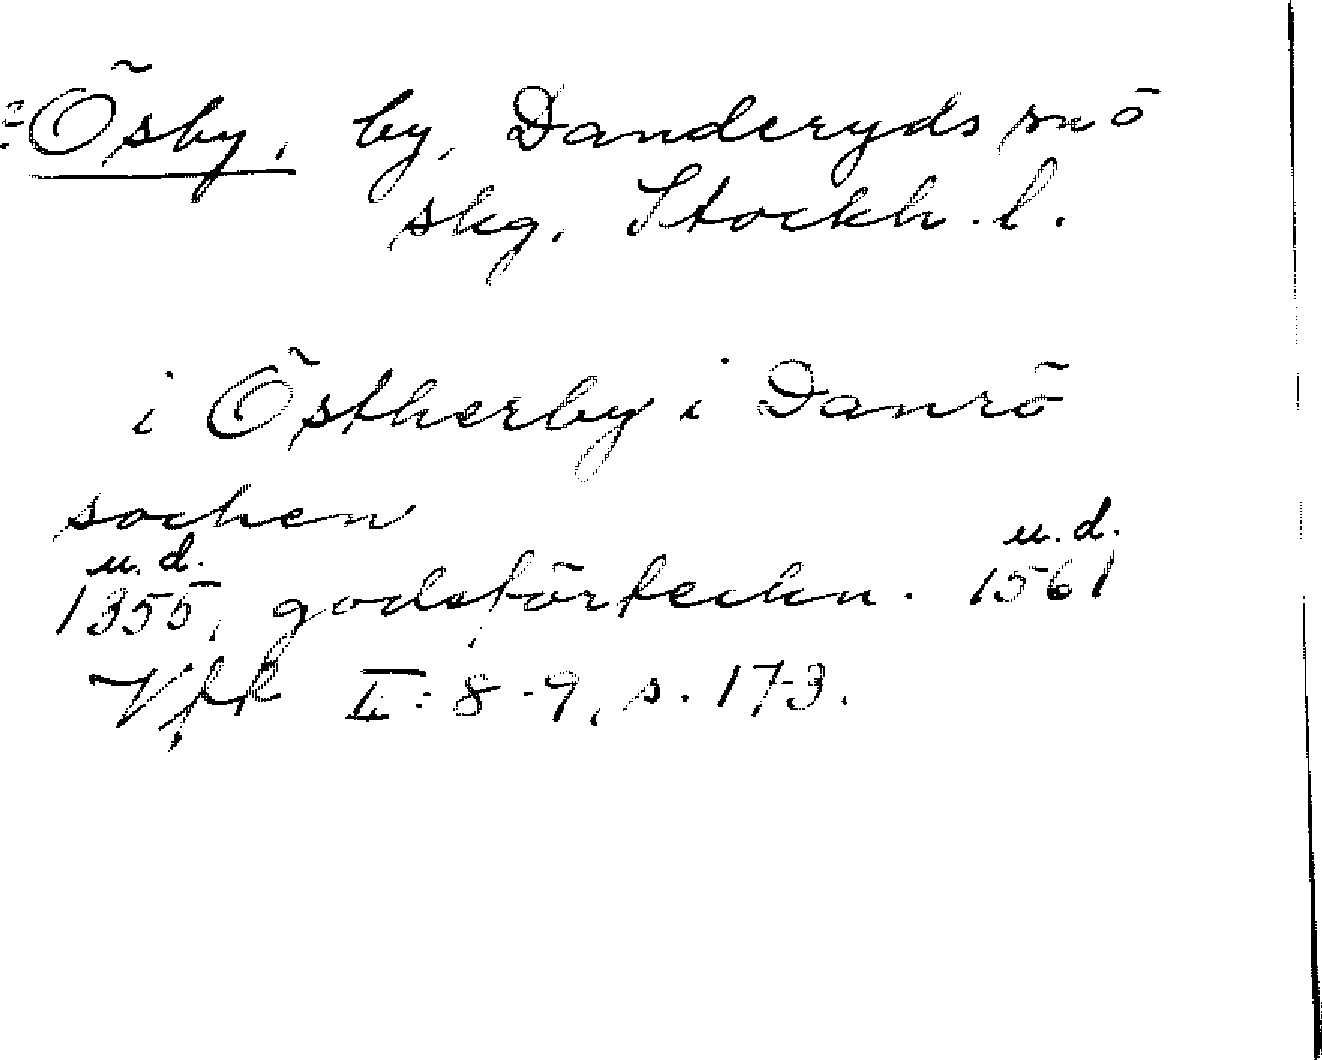 Ösby, by, Danderyds snö
skg. Stockh. l.
i Östherby i Danrö
sochen
u.d. u.d.
1355, godsförteckn. 1561
Vfr II: 8-9, s. 173.